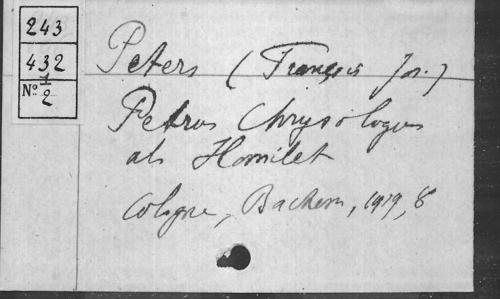 243
432
1
Nº 2
Peters (François Jos.)
Petrus Chrysologus
als Homilet
Cologne, Bachem, 1919, 8